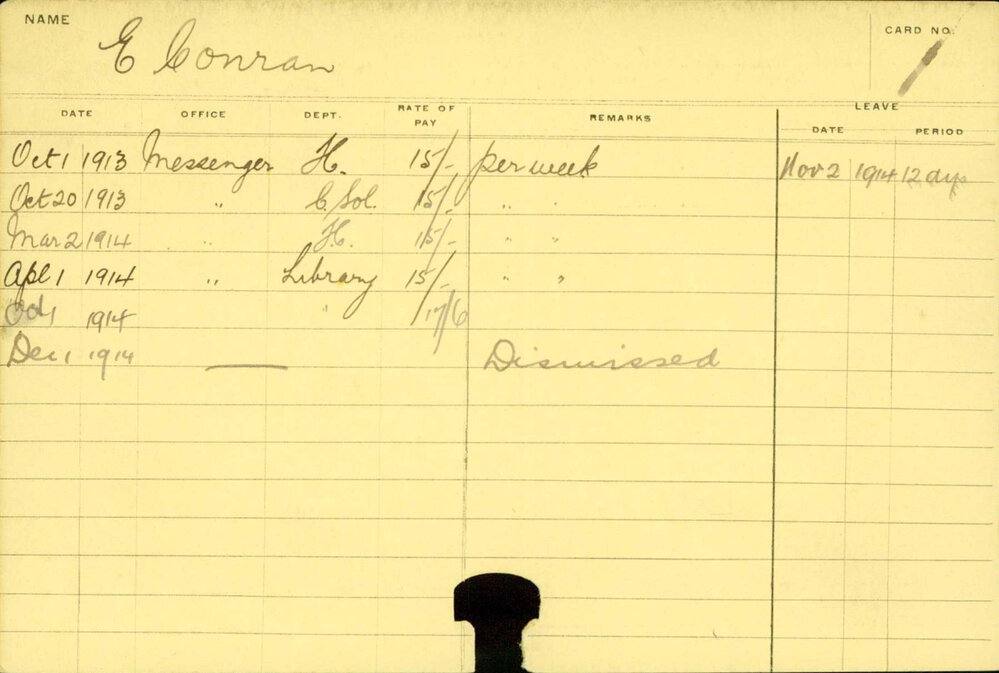 NAME
E Conran
CARD NO. 1
DATE OFFICE DEPT. RATE OF PAY REMARKS LEAVE
DATE PERIOD
Oct 1 1913 Messenger H. 15/- per week Nov 2 1914 12 dys
Oct 20 1913 " C. Sol. 15/- " "
Mar 2 1914 " H. 15/- " "
Apl 1 1914 " Library 15/- " "
Oct 1 1914 " 17/6
Dec 1 1914 — Dismissed